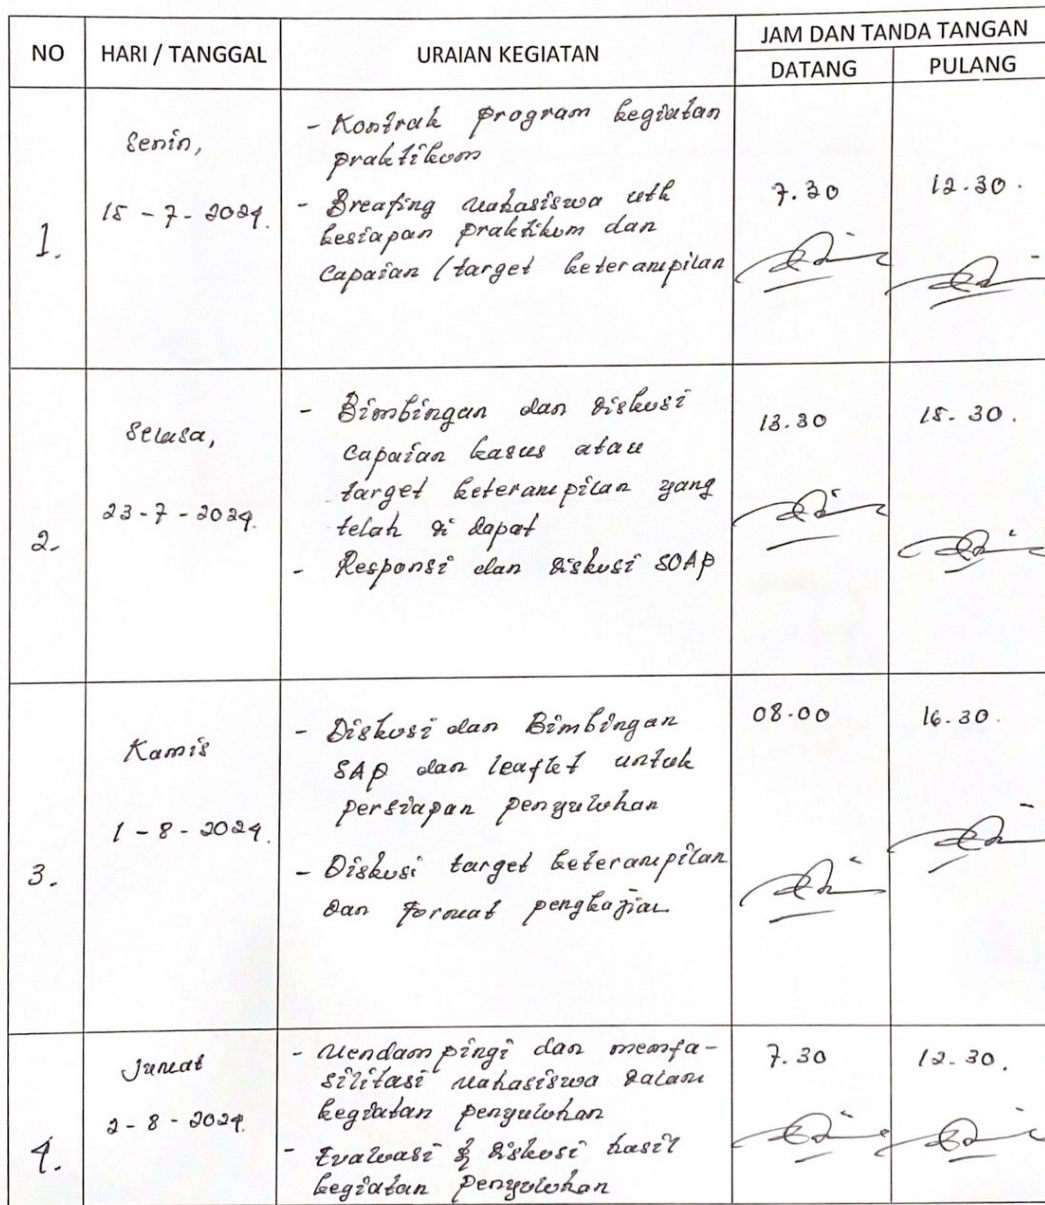 NO
HARI / TANGGAL
URAIAN KEGIATAN
JAM DAN TANDA TANGAN
DATANG
PULANG
1.
Senin,
15 - 7 - 2024.
- Kontrak program kegiatan
praktikum
- Breafing mahasiswa utk
kesiapan praktikum dan
capaian / target keterampilan
7.30
12.30.
2.
Selasa,
23 - 7 - 2024.
- Bimbingan dan diskusi
capaian kasus atau
target keterampilan yang
telah di dapat
- Responsi dan diskusi SOAP
13.30
18.30.
3.
Kamis
1 - 8 - 2024.
- Diskusi dan Bimbingan
SAP dan leaflet untuk
persiapan penyuluhan
- Diskusi target keterampilan
dan format pengkajian
08.00
16.30.
4.
Jumat
2 - 8 - 2024.
- Mendampingi dan memfa-
silitasi mahasiswa dalam
kegiatan penyuluhan
- Evaluasi & diskusi hasil
kegiatan penyuluhan
7.30
12.30.